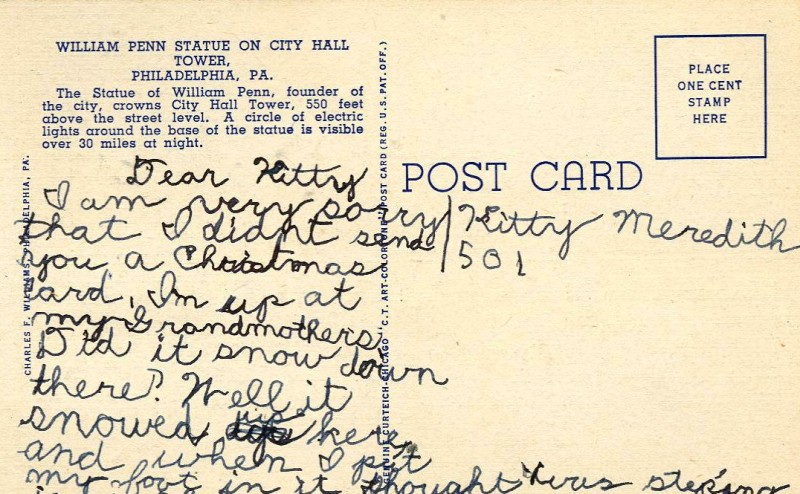 WILLIAM PENN STATUE ON CITY HALL
TOWER,
PHILADELPHIA, PA.
The Statue of William Penn, founder of
the city, crowns City Hall Tower, 550 feet
above the street level. A circle of electric
lights around the base of the statue is visible
over 30 miles at night.
CHARLES F. WILLIAMS, PHILADELPHIA, PA.
GENUINE CURTEICH-CHICAGO "C.T. ART-COLORTONE" POST CARD (REG. U.S. PAT. OFF.)
PLACE
ONE CENT
STAMP
HERE
POST CARD
Dear Kitty
I am very sorry
that I didnt send
you a Christmas
card, Im up at
my Grandmothers
Did it snow down
there? Well it
snowed up here,
and when I put
my foot in it thought I was steping
Kitty Meredith
501